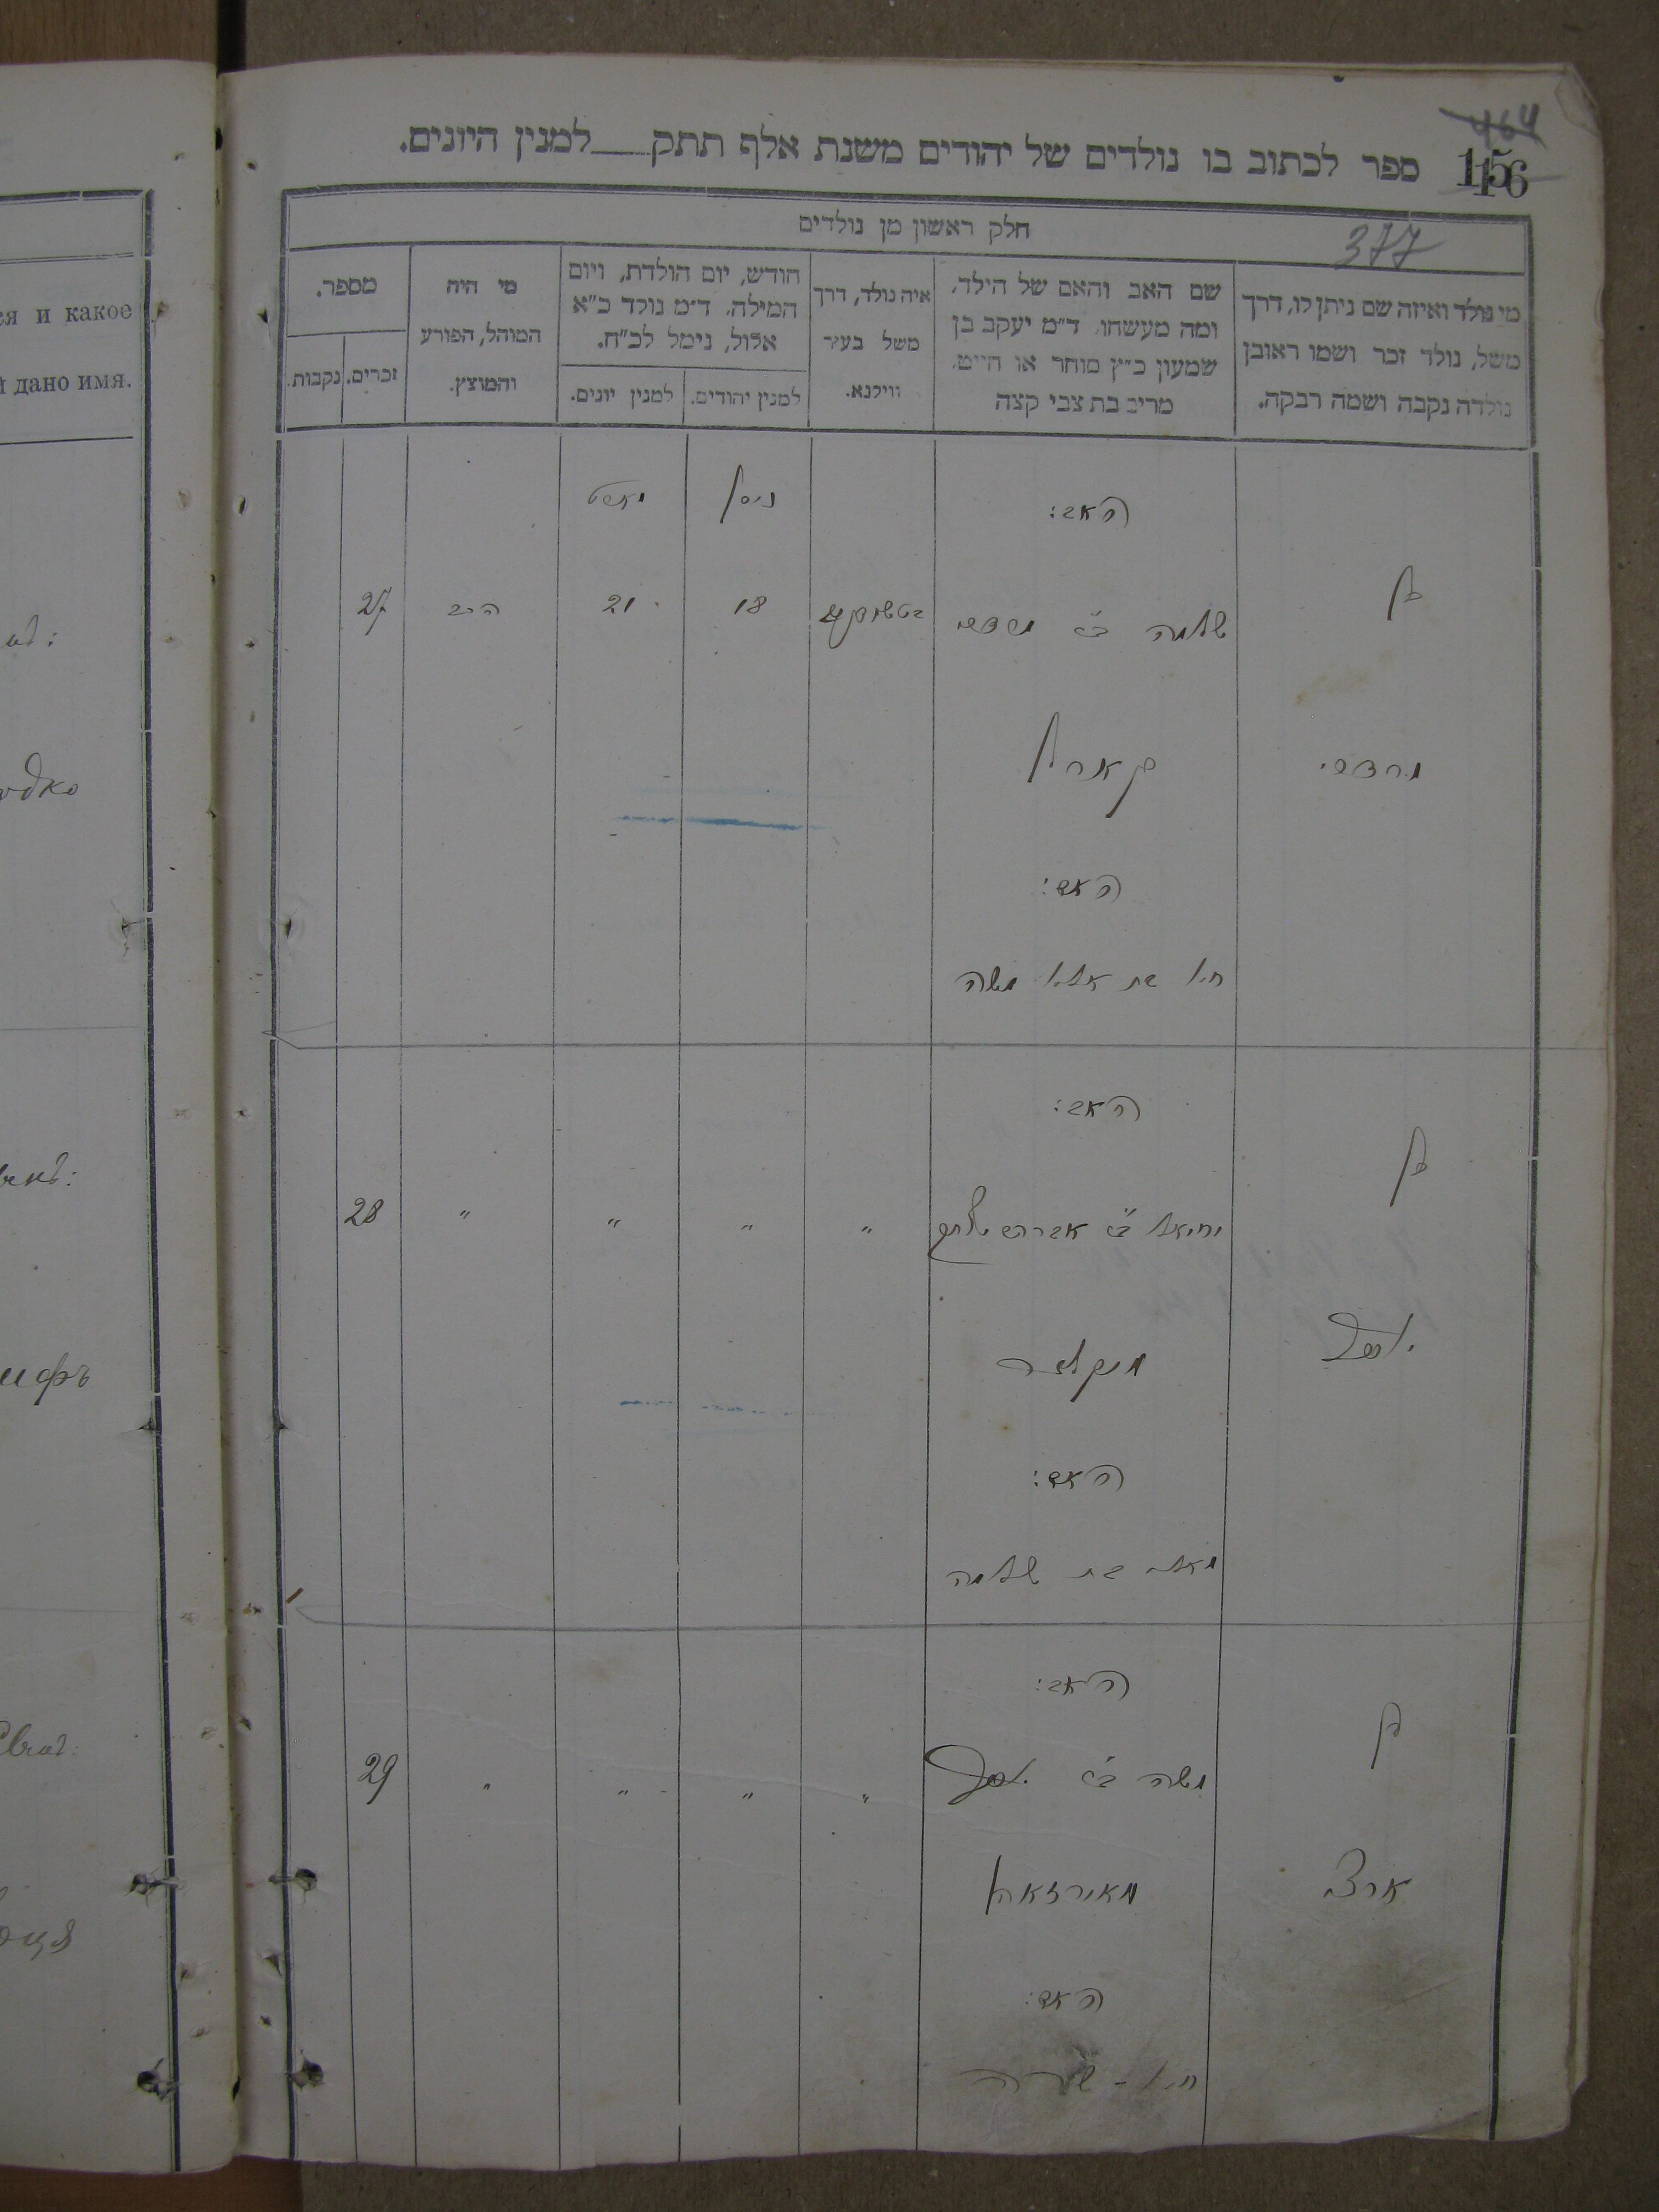 464
156
ספר לכתוב בו נולדים של יהודים משנת אלף תתק___למנין היונים.
חלק ראשון מן נולדים
377
מי נולד ואיזה שם ניתן לו, דרך
משל, נולד זכר ושמו ראובן
נולדה נקבה ושמה רבקה.
שם האב והאם של הילד,
ומה מעשהו, ד״מ יעקב בן
שמעון כ״ץ סוחר או חייט,
מרים בת צבי קצה
איה נולד, דרך
משל בעיר
ווילנא.
חודש, יום הולדת, ויום
המילה, ד״מ נולד כ״א
אלול, נימל לכ״ח.
למנין יהודים.
למנין יונים.
מי היה
המוהל, הפורע
והמוצץ.
מספר.
זכרים.
נקבות.
ניסן
מארט
האב:
בן
שלמה ב״ר מרדכי
18
21
הרב
27
מרדכי
האם:
חיה בת אלי׳ משה
האב:
בן
יחיאל ב״ר אברהם
"
"
"
"
28
יוסף
האם:
בת שלמה
האב:
בן
משה ב״ר יוסף
"
"
"
"
29
האם:
חי׳ - שרה
ся и какое
й дано имя.
 нъ:
одко
ифъ